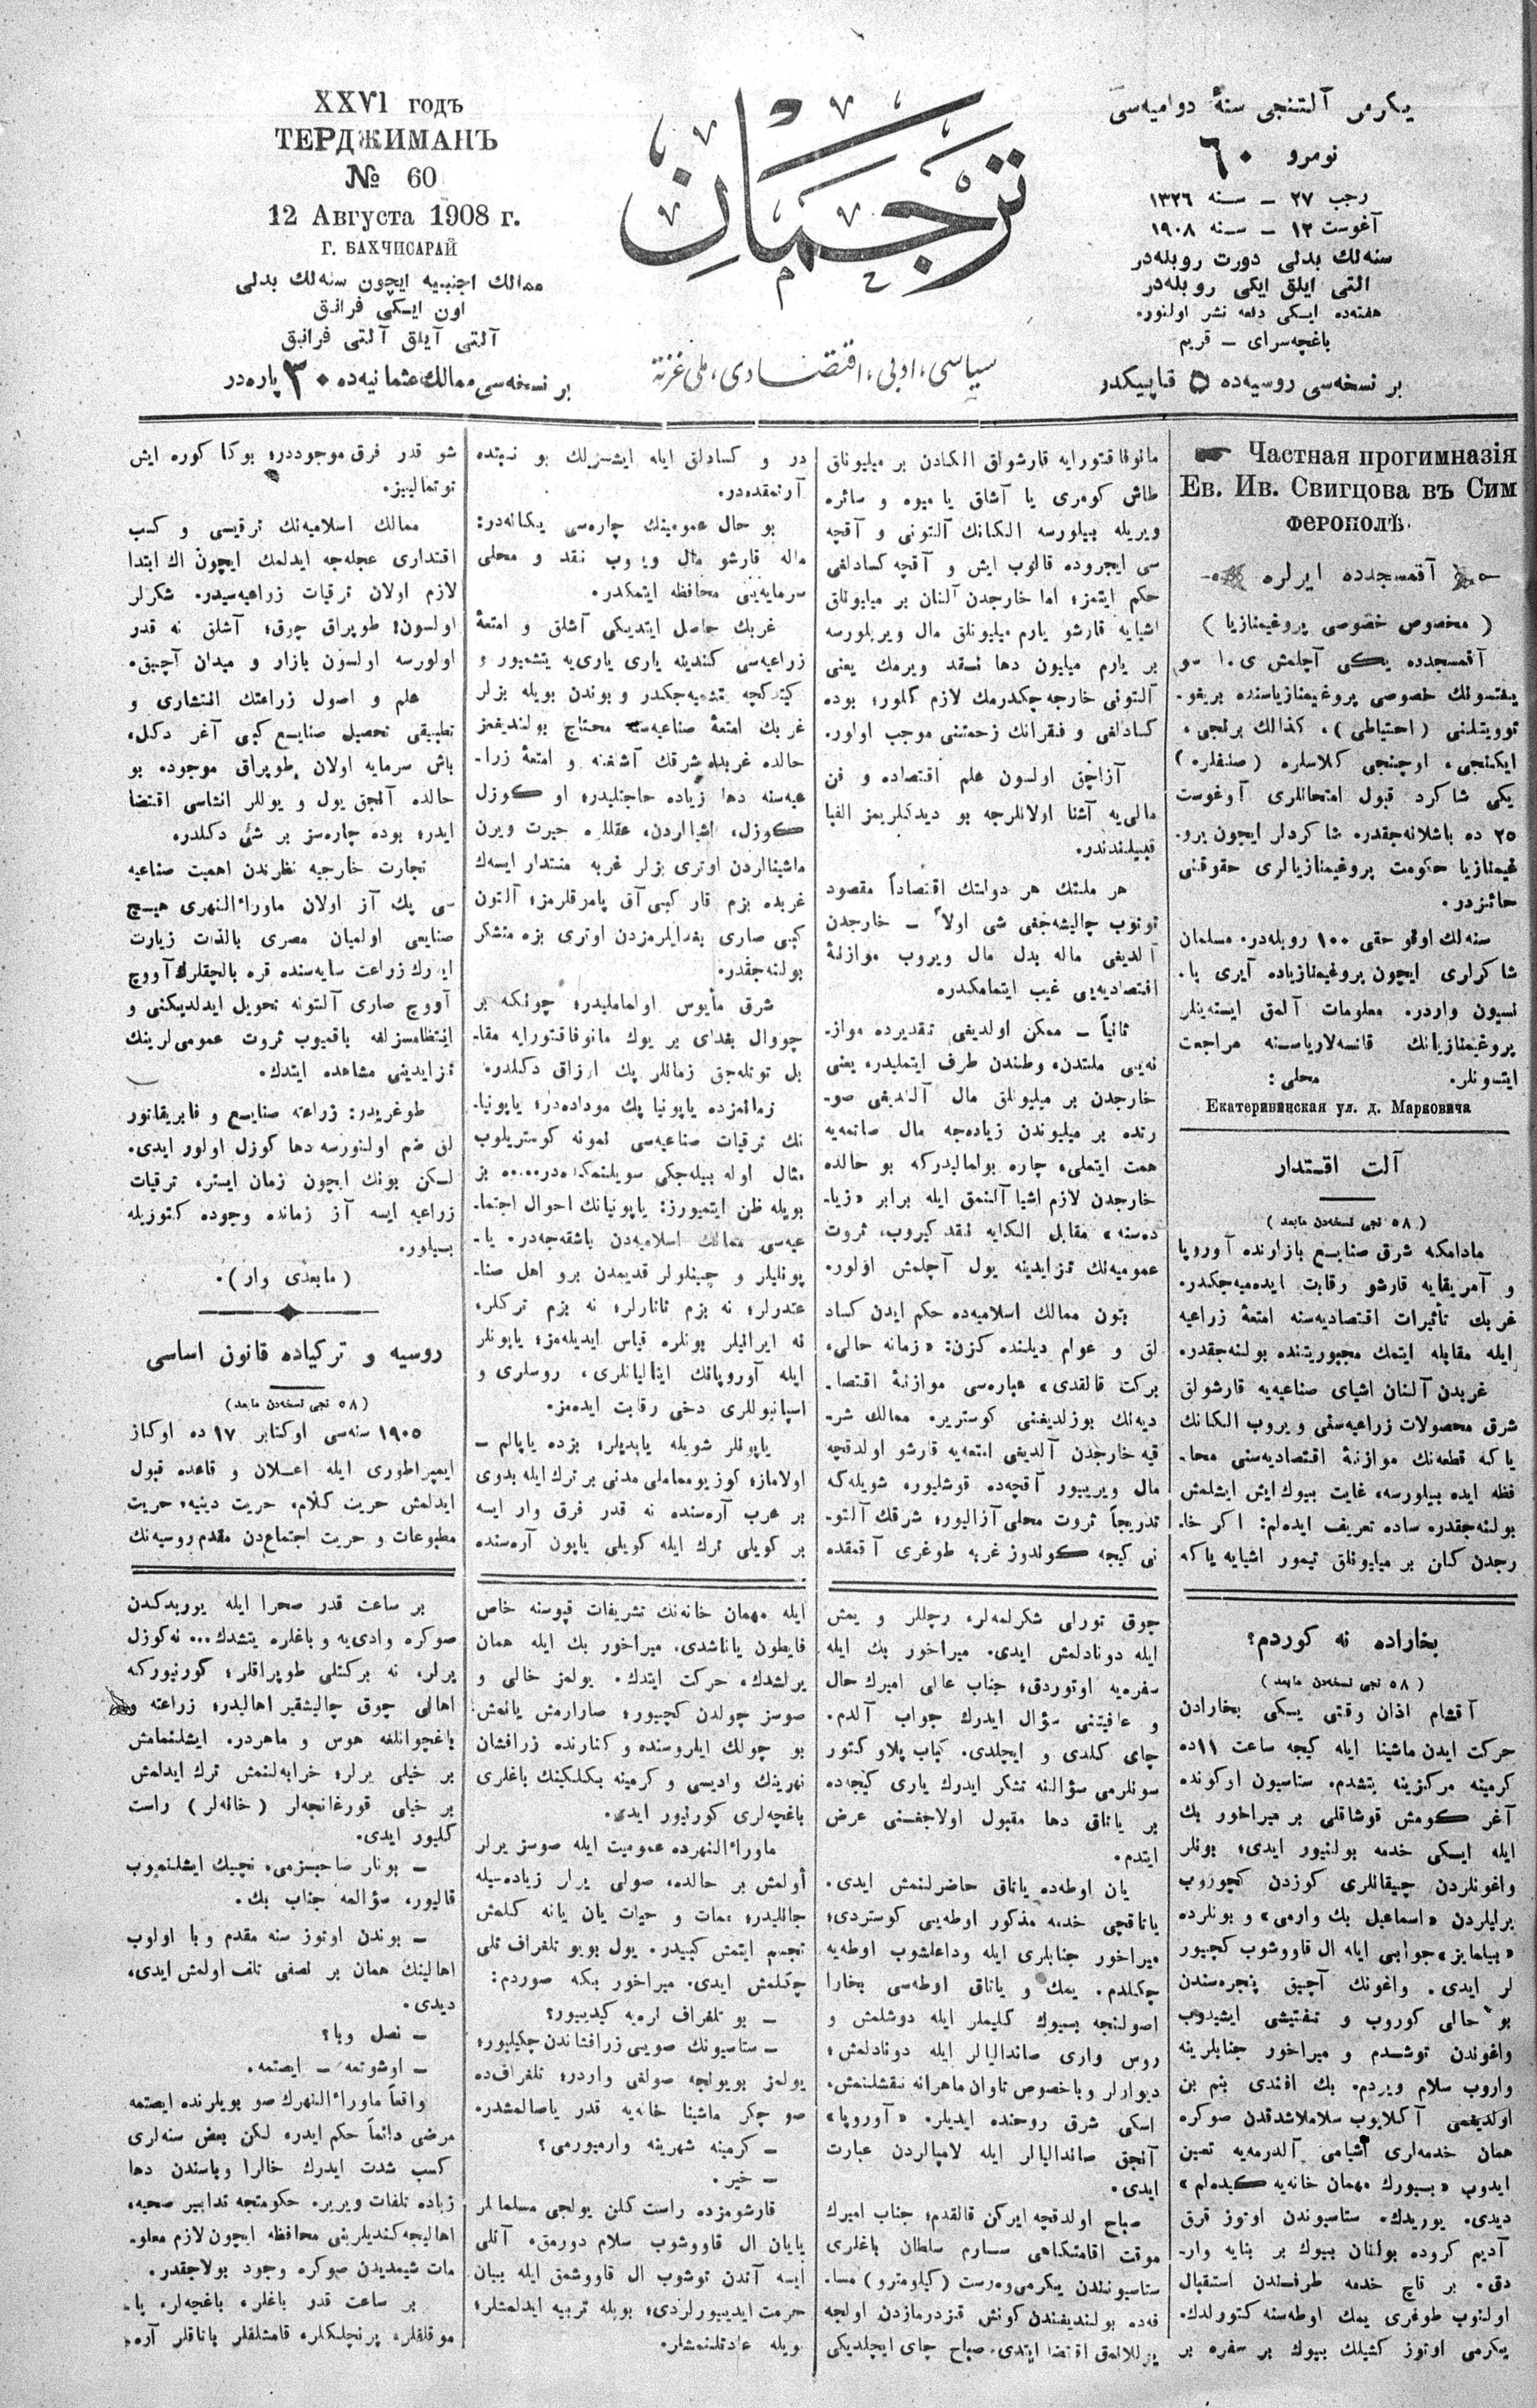 XXVI годъ
ТЕРДЖИМАНЪ
№ 60
12 Августа 1908 г.
Г. БАХЧИСАРАЙ
ممالك اجنبیه ایچون سنه‌لك بدلی
اون ایكی فرانق
آلتی آیلق آلتی فرانق
بر نسخه‌سی ممالك عثمانیه‌ده ۳۰ پاره‌در
ترجمان
سیاسی، ادبی، اقتصادی، ملی غزته
یكرمی آلتنجی سنۀ دوامیه‌سی
نومرو ٦٠
رجب ٢٧ – سنه ١٣٢٦
آغوست ١٢ – سنه ١٩٠٨
سنه‌لك بدلی دورت روبله‌در
التی ایلق ایكی روبله‌در
هفته‌ده ایكی دفعه نشر اولنور.
باغچه‌سرای – قریم
بر نسخه‌سی روسیه‌ده ۵ قاپیكدر
Частная прогимназія
Ев. Ив. Свигцова въ Сим
ферополѣ.
آقمسجدده ایرلره
( مخصوص خصوصی پروغیمنازیا )
حائزدر.
سنه‌لك اوقو حقی ١٠٠ روبله‌در. مسلمان
شاكرلری ایچون پروغیمنازیاده آیری پا-
نسیون واردر. معلومات آلمق ایسته‌ینلر
پروغیمنازیانك قانسه‌لاریاسنه مراجعت
ایتسونلر. محلی:
Екатерининская ул. д. Марковича
آلت اقتدار
( ٥٨ نجی نسخه‌دن مابعد )
مادامكه شرق صنایع بازارنده آوروپا
و آمریقایه قارشو رقابت ایده‌میه‌جكدر.
غربك تأثیرات اقتصادیه‌سنه امتعۀ زراعیه
ایله مقابله ایتمك مجبوریتنده بولنه‌جقدر.
غربدن آلنان اشیای صناعیه‌یه قارشولق
شرق محصولات زراعیه‌سنی ویروب الكانك
یاكه قطعه‌نك موازنۀ اقتصادیه‌سنی محا-
فظه ایده بیلورسه، غایت بیوك ایش ایشلمش
بولنه‌جقدر. ساده تعریف ایده‌لم: اكر خا-
رجدن كلن بر میلیونلق تیمور اشیایه یاكه
مانوفاقتورایه قارشولق الكادن بر میلیونلق
طاش كومری یا آشلق یا میوه و سائره
ویریله بیلورسه الكانك آلتونی و آقچه
سی ایچروده قالوب ایش و آقچه كسادلغی
حكم ایتمز؛ اما خارجدن آلنان بر میلیونلق
اشیایه قارشو یارم میلیونلق مال ویریلورسه
بر یارم میلیون دها نقد ویرمك یعنی
آلتونی خارجه چكدرمك لازم كلور؛ بوده
كسادلغی و فقرانك زحمتنی موجب اولور.
آزاچق اولسون علم اقتصاده و فن
مالی‌یه آشنا اولانلرجه بو دیدكلریمز الفبا
قبیلندندر.
هر ملتك هر دولتك اقتصاداً مقصود
توتوب چالیشه‌جغی شی اولاً – خارجدن
آلدیغی ماله بدل مال ویروب موازنۀ
اقتصادیه‌یی غیب ایتمامكدر.
ثانیاً – ممكن اولدیغی تقدیرده مواز-
نه‌یی ملتدن، وطندن طرف ایتملیدر. یعنی
خارجدن بر میلیونلق مال آلندیغی صو-
رتده بر میلیوندن زیاده‌جه مال صاتمه‌یه
همت ایتملی، چاره بولمالیدركه بو حالده
خارجدن لازم اشیا آلنمق ایله برابر «زیا-
ده‌سنه» مقابل الكایه نقد كیروب، ثروت
عمومیه‌نك تزایدینه یول آچلمش اولور.
بتون ممالك اسلامیه‌ده حكم ایدن كساد
لق و عوام دیلنده كزن: «زمانه حالی،
بركت قالقدی» عباره‌سی موازنۀ اقتصا-
دیه‌نك بوزلدیغنی كوستریر. ممالك شر-
قیه خارجدن آلدیغی امتعه‌یه قارشو اولدقچه
مال ویرییور آقچه‌ده قوشلیور. شویله‌كه
تدریجاً ثروت محلی آزالیور؛ شرقك آلتو-
نی كیجه كوندوز غربه طوغری آقمقده
در و كسادلق ایله ایشسزلك بو نسبتده
آرتمقده‌در.
بو حال عمومینك چاره‌سی یكانه‌در:
ماله قارشو مال ویروب نقد و محلی
سرمایه‌ینی محافظه ایتمكدر.
غربك حاصل ایتدیكی آشلق و امتعۀ
زراعیه‌سی كندینه یاری یاری‌یه یتشمیور و
كیتدكچه یتشمیه‌جكدر و بوندن بویله بزلر
غربك امتعۀ صناعیه‌سنه محتاج بولندیغمز
حالده غربده شرقك آشلغنه و امتعۀ زرا-
عیه‌سنه دها زیاده حاجتلیدر؛ او كوزل
كوزل، اشیالردن، عقللره حیرت ویرن
ماشینالردن اوتری بزلر غربه منتدار ایسه‌ك
غربده بزم قار كبی آق پامرقلرمز؛ آلتون
كبی صاری بغدایلرمزدن اوتری بزه متشكر
بولنه‌جقدر.
شرق مأیوس اولمامالیدر؛ چونكه بر
چووال بغدای بر یوك مانوفاقتورایه مقا-
بل توتله‌جق زمانلر پك ارزاق دكلدر.
زمانمزده یاپونیا پك موداده‌در؛ یاپونیا-
نك ترقیات صناعیه‌سی نمونه كوستریلوب
مثال اوله بیله‌جكی سویلنمكده‌در..... بز
بویله ظن ایتمیورز: یاپونیانك احوال اجتما-
عیه‌سی ممالك اسلامیه‌دن باشقه‌جه‌در. یا-
پونلیلر و چینلولر قدیمدن برو اهل صنا-
عتدرلر؛ نه بزم تاتارلر؛ نه بزم تركلر،
نه ایرانیلر بونلره قیاس ایدیله‌مز؛ یاپونلر
ایله آوروپانك ایتالیانلری، روسلری و
اسپانیوللری دخی رقابت ایده‌مز.
یاپونلر شویله یاپدیلر؛ بزده یاپالم –
اولاماز؛ كوزیومماملی مدنی بر ترك ایله بدوی
بر عرب آره‌سنده نه قدر فرق وار ایسه
بر كویلی ترك ایله كویلی یاپون آره‌سنده
شو قدر فرق موجوددر؛ بوكا كوره ایش
توتمالییز.
ممالك اسلامیه‌نك ترقیسی و كسب
اقتداری عجله‌جه ایدلمك ایچون اك ابتدا
لازم اولان ترقیات زراعیه‌سیدر. شكرلر
اولسون؛ طوپراق چوق؛ آشلق نه قدر
اولورسه اولسون بازار و میدان آچیق.
علم و اصول زراعتك انتشاری و
تطبیقی تحصیل صنایع كبی آغر دكل،
باش سرمایه اولان طوپراق موجود. بو
حالده آنجق یول و یوللر انشاسی اقتضا
ایدر؛ بوده چاره‌سز بر شیٔ دكلدر.
تجارت خارجیه نظرندن اهمیت صناعیه
سی پك آز اولان ماوراءالنهری هیچ
صنایعی اولمیان مصری بالذات زیارت
ایدرك زراعت سایه‌سنده قره بالچقلرك آووچ
آووچ صاری آلتونه تحویل ایدلدیكنی و
انتظامسزلغه باقمیوب ثروت عمومی‌لرینك
تزایدینی مشاهده ایتدك.
طوغریدر: زراعته صنایع و فابریقاتور
لق ضم اولنورسه دها كوزل اولور ایدی.
لكن بونك ایچون زمان ایستر. ترقیات
زراعیه ایسه آز زمانده وجوده كتوریله
بیلور.
(مابعدی وار).
روسیه و تركیاده قانون اساسی
(٥٨ نجی نسخه‌دن مابعد)
١٩٠٥ سنه‌سی اوكتابر ١٧ ده اوكاز
ایمپراطوری ایله اعلان و قاعده قبول
ایدلمش حریت كلام، حریت دینیه، حریت
مطبوعات و حریت اجتماعدن مقدم روسیه‌نك
بخاراده نه كوردم؟
( ٥٨ نجی نسخه‌دن مابعد )
آقشام اذان وقتی یسكی بخارادن
حركت ایدن ماشینا ایله كیجه ساعت ١١ده
كرمینه مركزینه یتشدم. ستاسیون اوكونده
آغر كومش قوشاقلی بر میراخور بك
ایله ایكی خدمه بولنیور ایدی؛ بونلر
واغونلردن چیقانلری كوزدن كچوروب
برلیلردن «اسماعیل بك وارمی» و بونلرده
«بیلمایز» جوابی ایله ال قاووشوب كچیور
لر ایدی. واغونك آچیق پنجره‌سندن
بو حالی كوروب و تفتیشی ایشیدوب
واغوندن توشدم و میراخور جنابلرینه
واروب سلام ویردم. بك افندی بنم بن
اولدیغمی آكلایوب سلاملاشدقدن صوكره
همان خدمه‌لری اشیامی آلدرمه‌یه تعیین
ایدوب «بیورك مهمان خانه‌یه كیده‌لم»
دیدی. یوریدك. ستاسیوندن اوتوز قرق
آدیم كروده بولنان بیوك بر بنایه وار-
دق. بر قاچ خدمه طرفندن استقبال
اولنوب طوغری یمك اوطه‌سنه كتورلدك.
یكرمی اوتوز كشیلك بیوك بر سفره بر
چوق تورلی شكرلمه‌لر، رچللر و یمش
ایله دونادلمش ایدی. میراخور بك ایله
سفره‌یه اوتوردق؛ جناب عالی امیرك حال
و عافیتنی سؤال ایدرك جواب آلدم.
چای كلدی و ایچلدی. كباب پلاو كتور
سونلرمی سؤالنه تشكر ایدرك یاری كیجه‌ده
بر یاتاق دها مقبول اولاجغنی عرض
ایتدم.
یان اوطه‌ده یاتاق حاضرلنمش ایدی.
یاتاقچی خدمه مذكور اوطه‌یی كوستردی؛
میراخور جنابلری ایله وداعلشوب اوطه‌یه
چكلدم. یمك و یاتاق اوطه‌سی بخارا
اصولنجه بیوك كلیملر ایله دوشلمش و
روس واری صاندالیالر ایله دونادلمش؛
دیوارلر وباخصوص تاوان ماهرانه نقشلنمش،
اسكی شرق روحنده ایدیلر. «آوروپا»
آنجق صاندالیالر ایله لامپالردن عبارت
ایدی.
صباح اولدقچه ایركن قالقدم؛ جناب امیرك
موقت اقامتكاهی سارم سلطان باغلری
ستاسیوندن یكرمی وه‌رست (كیلومترو) مسا-
فه‌ده بولندیغندن كونش قیزدرمازدن اولجه
یوللانمق اقتضا ایتدی. صباح چای ایچلدیكی
ایله مهمان خانه‌نك تشریفات قپوسنه خاص
فایطون یاناشدی. میراخور بك ایله همان
یرلشدك، حركت ایتدك. یولمز خالی و
صوسز چولدن كچیور؛ صارارمش یانمش
بو چولك ایلروسنده و كنارنده زرافشان
نهرینك وادیسی و كرمینه بكلكینك باغلری
باغچه‌لری كورنیور ایدی.
ماوراءالنهرده عمومیت ایله صوسز یرلر
أولمش بر حالده، صولی یرلر زیاده‌سیله
جانلیدر؛ ممات و حیات یان یانه كلمش
تجسم ایتمش كبیدر. یول بویو تلغراف تلی
چكلمش ایدی. میراخور بكه صوردم:
– بو تلغراف نره‌یه كیدییور؟
– ستاسیونك صویی زرافشاندن چكیلیور؛
یولمز بویونجه صولغی واردر؛ تلغراف‌ده
صو چكر ماشینا خانه‌یه قدر یاصالمشدر.
– كرمینه شهرینه وارمیورمی؟
– خیر.
قارشومزده راست كلن یولجی مسلمانلر
یایان ال قاووشوب سلام دورمق، آتلی
ایسه آتدن توشوب ال قاووشمق ایله بیان
حرمت ایدییورلردی؛ بویله تربیه ایدلمشلر؛
بویله عادتلنمشلر.
بر ساعت قدر صحرا ایله یوریدكدن
صوكره وادی‌یه و باغلره یتشدك... نه‌كوزل
یرلر، نه بركتلی طوپراقلر؛ كورنیوركه
اهالی چوق چالیشقیر اهالیدر؛ زراعته و
باغچوانلغه هوس و ماهردر. ایشلنمامش
بر خیلی یرلر؛ خرابه‌لنمش ترك ایدلمش
بر خیلی قورغانچه‌لر (خانه‌لر) راست
كلیور ایدی.
– بونلر صاحبسزمی، نچیك ایشلنمیوب
قالیور، سؤالمه جناب بك.
– بوندن اوتوز سنه مقدم وبا اولوب
اهالینك همان بر نصفی تلف اولمش ایدی،
دیدی.
– نصل وبا؟
– اوشوتمه – ایصتمه.
واقعاً ماوراءالنهرك صو بویلرنده ایصتمه
مرضی دائماً حكم ایدر. لكن بعض سنه‌لری
كسب شدت ایدرك خالرا وباسندن دها
زیاده تلفات ویریر. حكومتجه تدابیر صحیه،
اهالیجه كندیلرینی محافظه ایچون لازم معلو-
مات شیمدیدن صوكره وجود بولاجقدر.
بر ساعت قدر باغلر، باغچه‌لر، پا-
موقلقلر، پرنچلكلر، قامشلقلر یاناقلر آره-